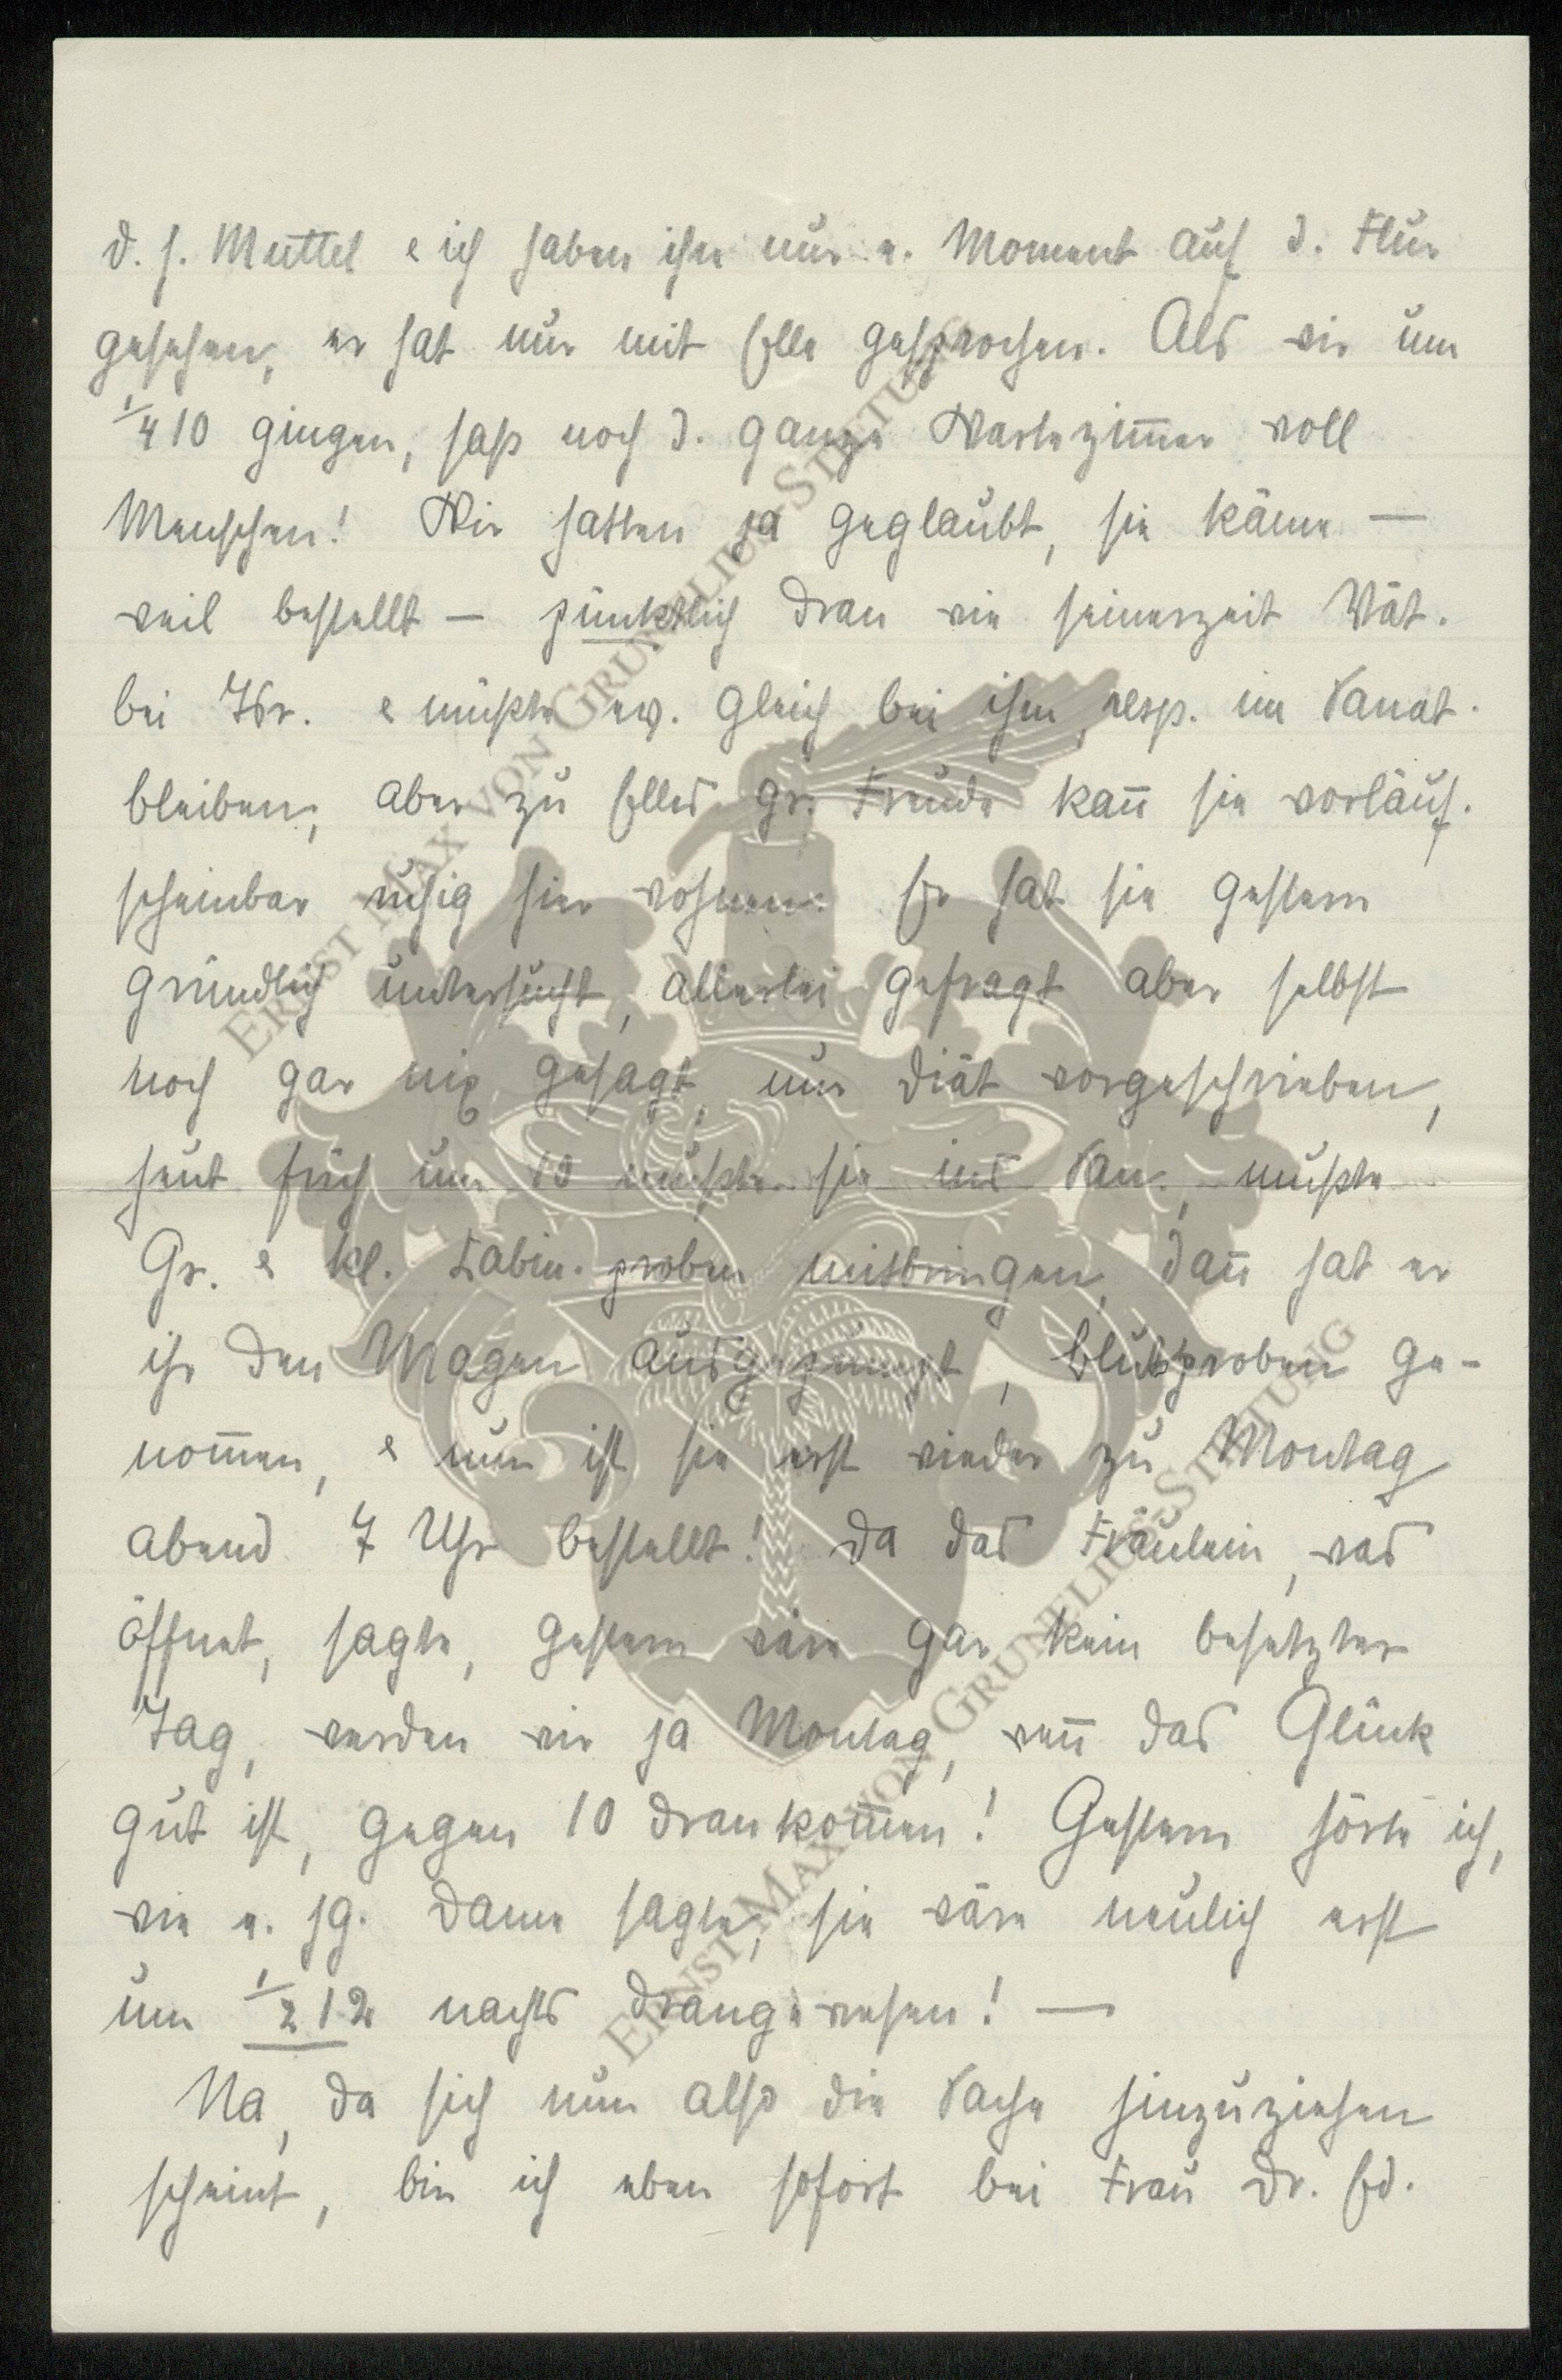 d. h. Muttel & ich haben ihn nur e. Moment auf d. Flur
gesehen, er hat nur mit Elle gesprochen. Als wir um
1/4 10 gingen, saß noch d. ganze Wartezim̅er voll
Menschen! Wir hatten ja geglaubt, sie käme —
weil bestellt — pünktlich dran wie seinerzeit Vät.
bei & müßte ev. gleich bei ihm, resp. im Sanat.
bleiben, aber zu Elles gr. Freude kan̅ sie vorläuf.
scheinbar ruhig hier wohnen. Er hat sie gestern
gründlich untersucht, allerlei gefragt aber selbst
noch gar nix gesagt, nur Diät vorgeschrieben,
heut früh um 10 mußte sie ins San., mußte
Gr. & kl. Kabin. proben mitbringen, dan̅ hat er
ihr den Magen ausgepumpt, Blutproben ge-
nom̅en, & nun ist sie erst wieder zu Montag
abend 7 Uhr bestellt! Da das Fräulein, was
öffnet, sagte, gestern wäre gar kein besetzter
Tag, werden wir ja Montag, wen̅ das Glück
gut ist, gegen 10 drankom̅en! Gestern hörte ich,
wie e. jg. Dame sagte, sie wäre neulich erst
um 1/2 12 nachts drangewesen! —
Na, da sich nun also die Sache hinzuziehen
scheint, bin ich eben sofort bei Frau Dr. Ed.
ERNST MAX VON GRUNELIUS-STIFTUNG
ERNST MAX VON GRUNELIUS-STIFTUNG